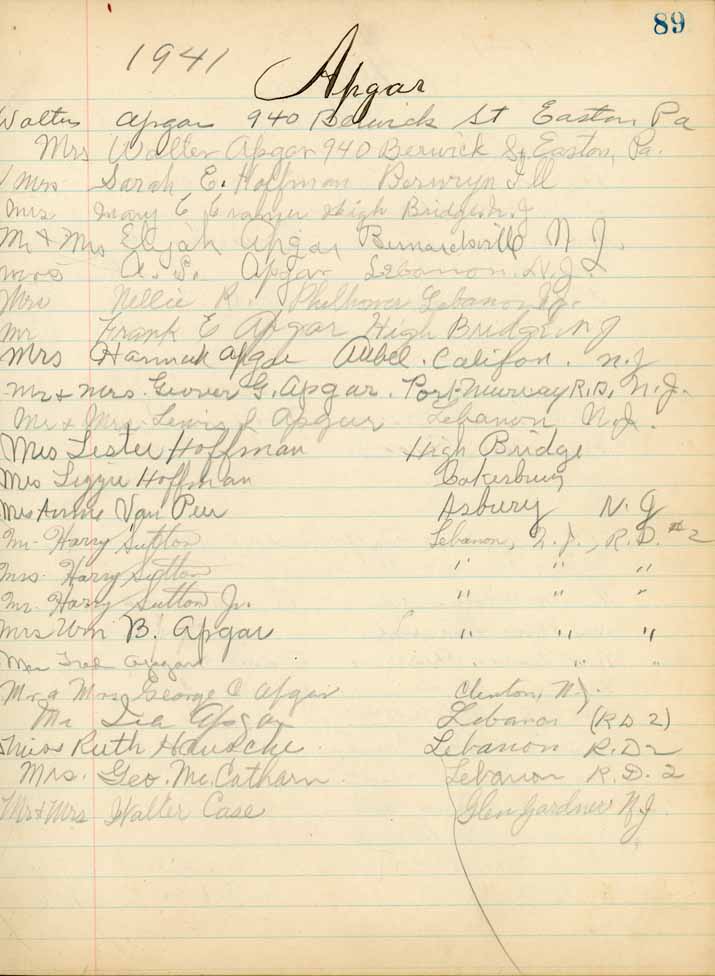 89
1941 Apgar
Walter Apgar 940 Berwick St Easton, Pa
Mrs Walter Apgar 940 Berwick St, Easton, Pa.
Mrs Sarah E. Hoffman Berwryn Ill
Mrs Mary E High Bridge N.J
Mr & Mrs Elijah Apgar Bernardsville N J.
Mrs A. S. Apgar Lebanon. N.J.
Mrs Nellie R. Philhower Lebanon N.J.
Mr Frank E Apgar High Bridge N J
Mrs Hannah Apgar Califon. N.J
Mr & Mrs. Grover G. Apgar. Port-Murray R.D. N.J.
Mr & Mrs Lewis Apgar Lebanon N.J.
Mrs Lester Hoffman High Bridge
Mrs Lizzie Hoffman Cokesbury
Mrs Annie Van Pelt Asbury N. J
Mr. Harry Sutton Lebanon, N.J., R.D. #2
Mrs. Harry Sutton " " "
Mr. Harry Sutton Jr. " " "
Mrs Wm B. Apgar " " "
Apgar " " "
Mr & Mrs George C Apgar Clinton, N.J.
Mr Ira Apgar Lebanon (R D 2)
Miss Ruth Lebanon R. D 2
Mrs. Geo. Mc.Catharn. Lebanon R. D. 2
Mr & Mrs Walter Case Glen Gardner N J.